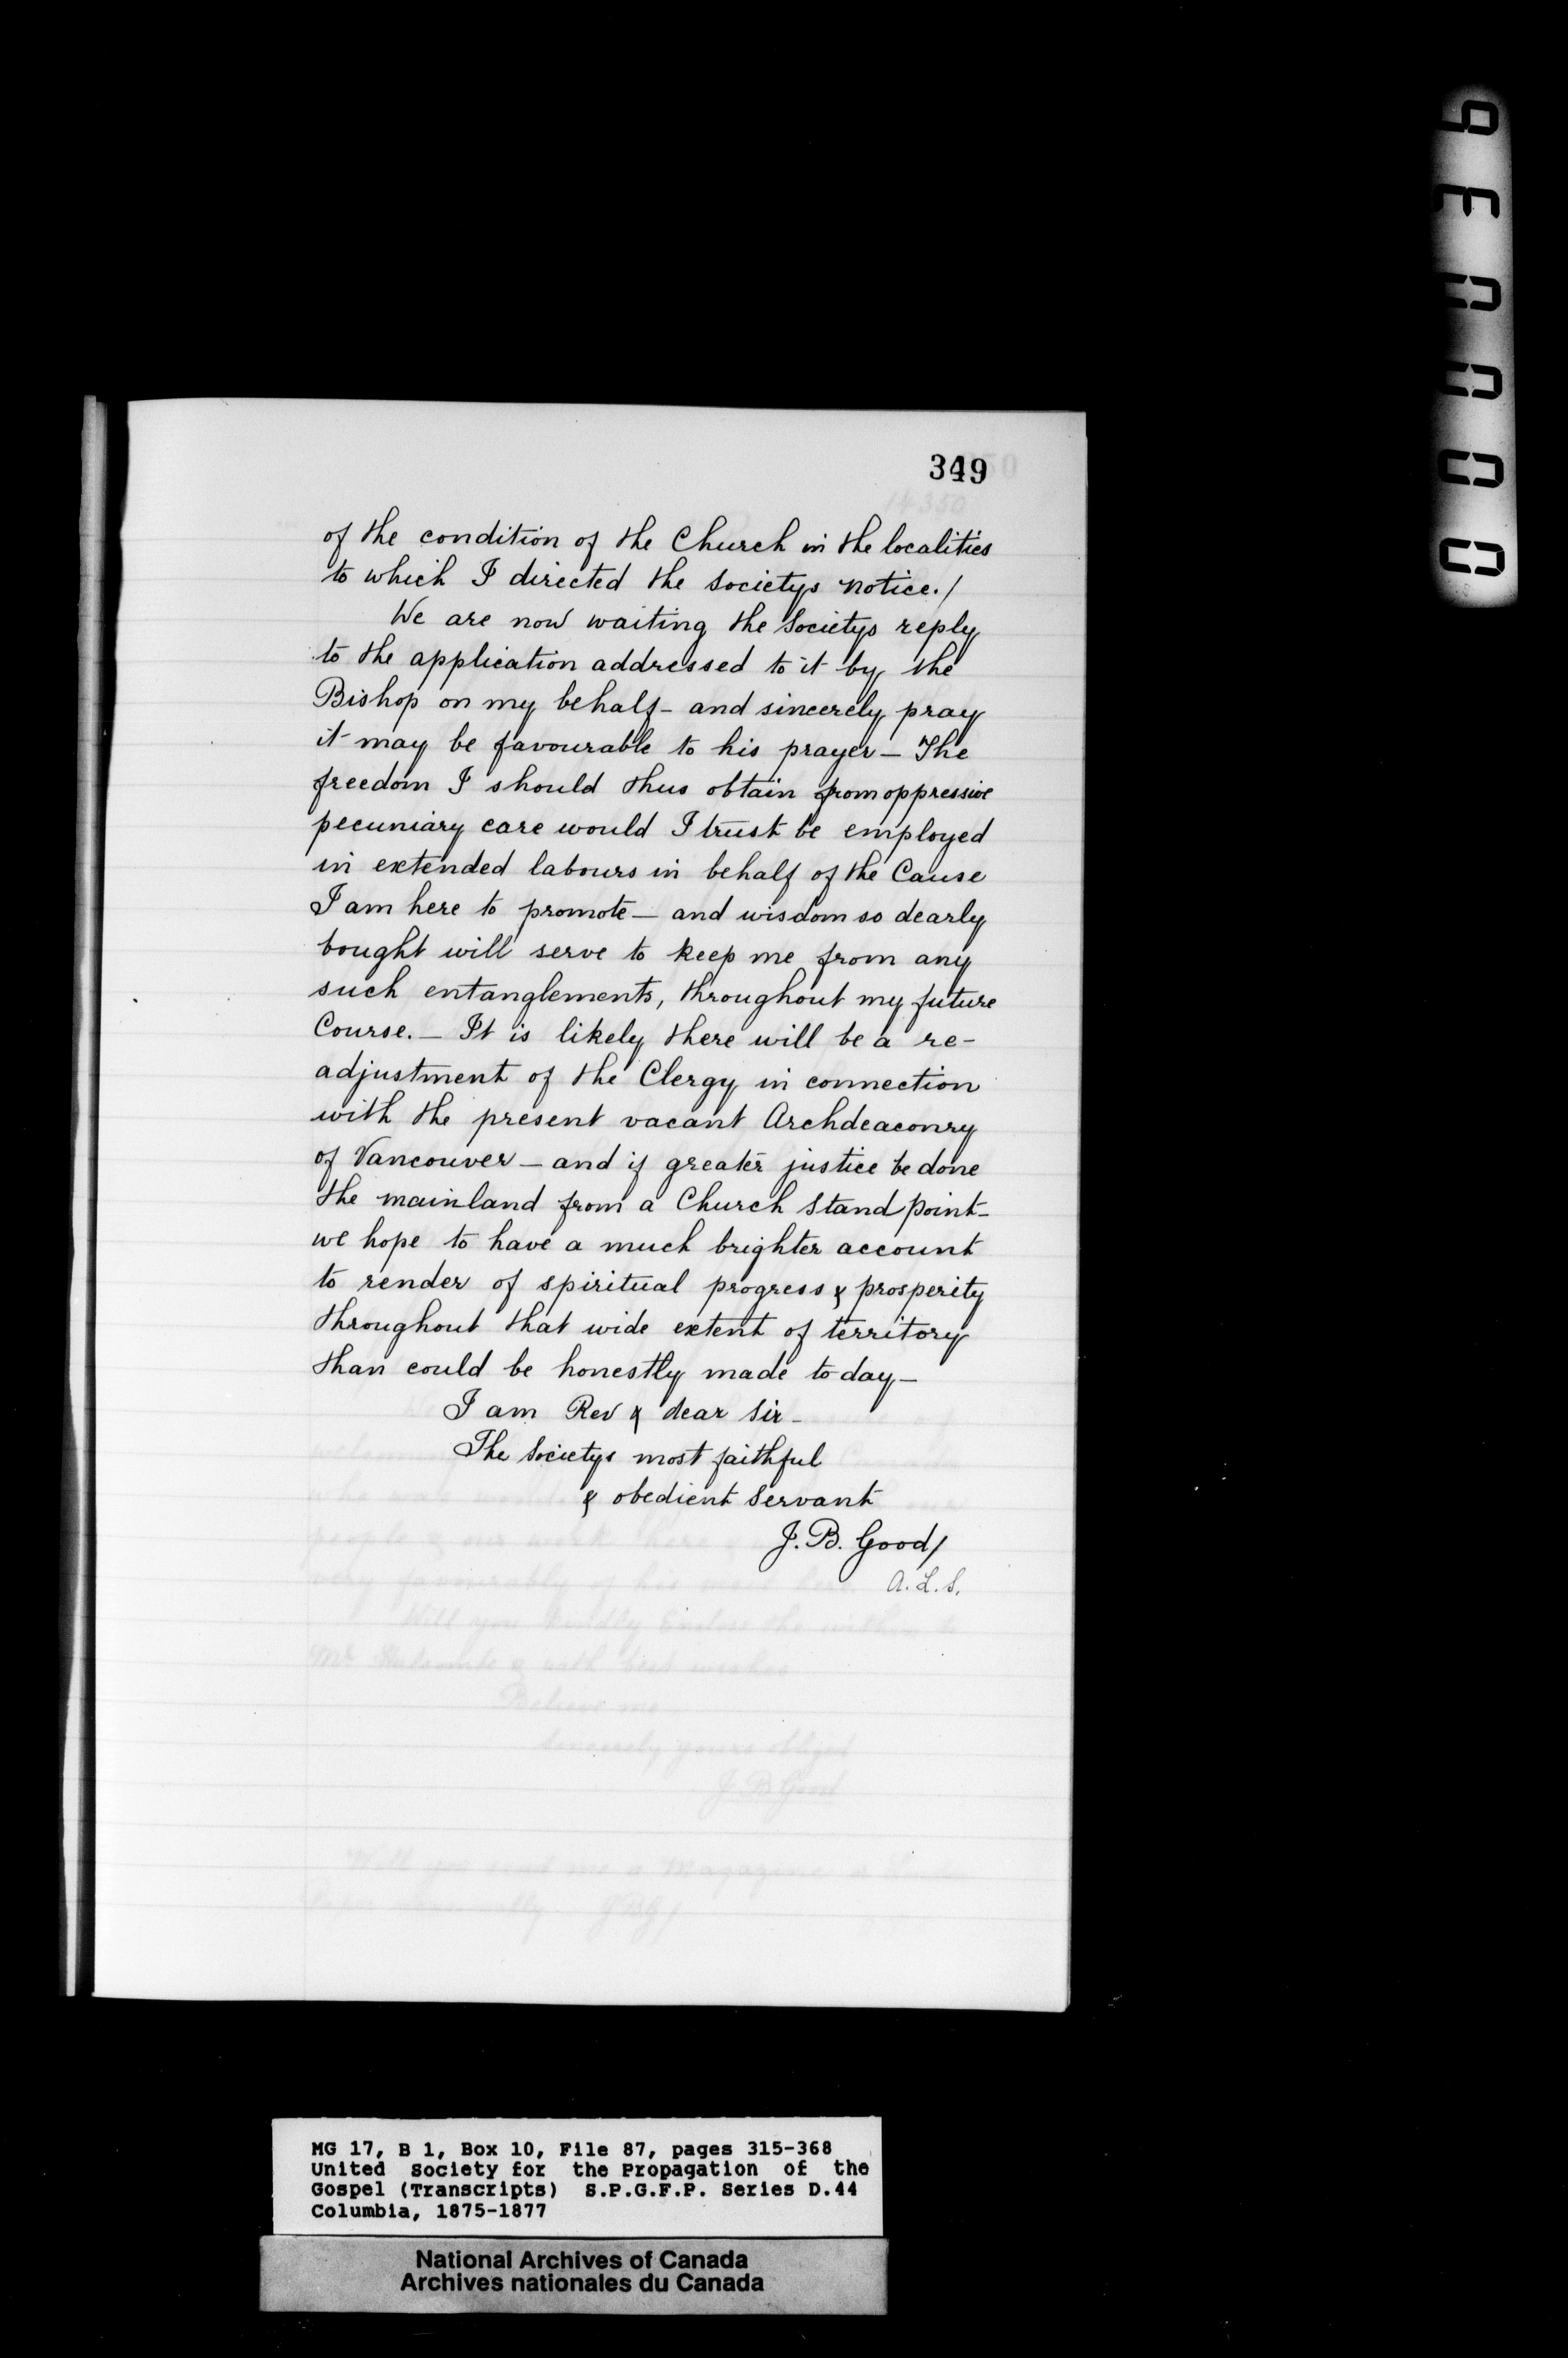 349
of the condition of the Church in the localities
to which I directed the Societys notice./
We are now waiting the Societys reply
to the application addressed to it by the
Bishop on my behalf - and sincerely pray
it may be favourable to his prayer — The
freedom I should thus obtain from oppressive
pecuniary care would I trust be employed
in extended labours in behalf of the Cause
I am here to promote — and wisdom so dearly
bought will serve to keep me from any
such entanglements, throughout my future
Course. — It is likely there will be a re-
adjustment of the Clergy in connection
with the present vacant Archdeaconry
of Vancouver — and if greater justice be done
the mainland from a Church stand point —
we hope to have a much brighter account
to render of spiritual progress & prosperity
throughout that wide extent of territory
than could be honestly made to day —
I am Rev & dear Sir -
The Societys most faithful
& obedient Servant
J. B. Good/
A. L. S.
MG 17, B 1, Box 10, File 87, pages 315-368
United Society for the Propagation of the
Gospel (Transcripts) S.P.G.F.P. Series D.44
Columbia, 1875-1877
National Archives of Canada
Archives nationales du Canada